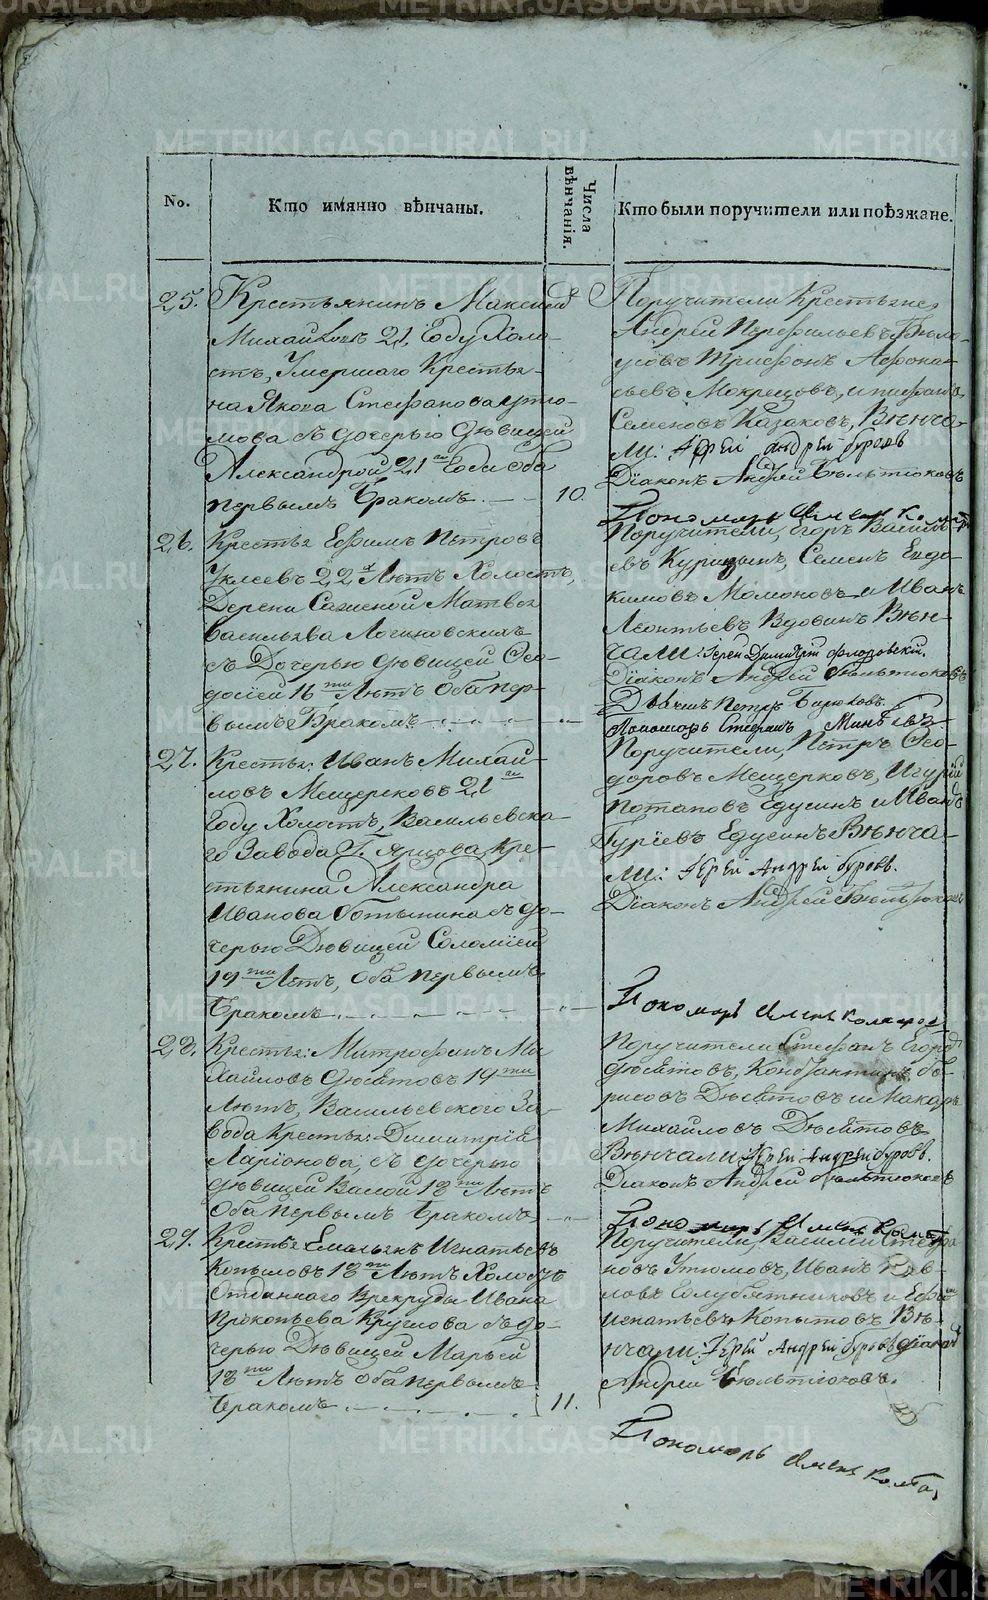 METRIKI.GASO-URAL.RU
No.
Кто имянно вѣнчаны.
Числа вѣнчанія.
Кто были поручители или поѣзжане.
25. Крестьянинъ Максимъ
Михайловъ 21 Году Холо-
стъ, Умершаго Крестья-
на Якова Стефанова Утю-
мова съ дочерью дѣвицей
Александрой 21 Года оба
первымъ бракомъ 10.
Поручители Крестьяне,
Андрей Перфильевъ
Трифонъ Афона-
сьевъ Мокрецовъ,
Семеновъ Казаковъ, Вѣнча-
ли: Іерей Андрей Буровъ
Діаконъ Андрей Бѣльтюковъ
Пономарь
26. Крестья: Ефимъ Петровъ
22 Лѣтъ Холостъ,
Дерени Матвея
Васильева Логиновскихъ
съ Дочерью дѣвицей Ѳео-
досіей 16ти Лѣтъ Оба пер-
вымъ Бракомъ
Поручители, Егоръ Василь-
евъ Курицынъ, Семенъ Евдо-
кимовъ Момоновъ и Иванъ
Леонтьевъ Вдовинъ Вѣн-
чали: Іерей Димитрій Флоровскій.
Діаконъ Андрей Бѣльтюковъ
Дьячекъ Петръ Бирюковъ.
Пономарь Стефанъ
27. Крестья: Иванъ Михай-
ловъ Мещерковъ 21
Году Холостъ, Васильевска-
го Завода Г. Ярцова Кре-
стьянина Александра
Иванова съ до-
черью Дѣвицей Соломіей
19ти Лѣтъ, Оба первымъ
Бракомъ
Поручители, Петръ Ѳео-
доровъ Мещерковъ, Игурій
Потаповъ Едусинъ и Иванъ
Гуріевъ Едусинъ Вѣнча-
ли: Іерей Андрей Буровъ.
Діаконъ Андрей Бѣльтюковъ
Пономарь
28. Крестья: Митрофанъ Ми-
хайловъ Дюсятовъ 19ти
Лѣтъ, Васильевского За-
вода Крестья: Димитрія
Ларіонова, съ дочерью
дѣвицей Васой 18ти Лѣтъ
Оба первымъ бракомъ,
Поручители Стефанъ Егоровъ
Дюсятовъ, Константинъ Бо-
рисовъ Дюсятовъ и Макаръ
Михайловъ Дюсятовъ
Вѣнчали Іерей Андрей Буровъ.
Діаконъ Андрей Бѣльтюковъ
Пономарь
29. Крестья: Емельянъ Игнатьевъ
Копыловъ 18ти Лѣтъ Холостъ
Отданнаго Врекруды Ивана
Прокопьева Круглова съ до-
черью Дѣвицей Марьей
18ти Лѣтъ Оба первымъ
бракомъ 11.
Поручители, Василій Стефа-
новъ Утюмовъ, Иванъ Пав-
ловъ Голубятниковъ и Ефимъ
Игнатьевъ Копытовъ Вѣ-
нчали: Іерей Андрей Буровъ Діаконъ
Андрей Бѣльтюковъ.
Пономарь